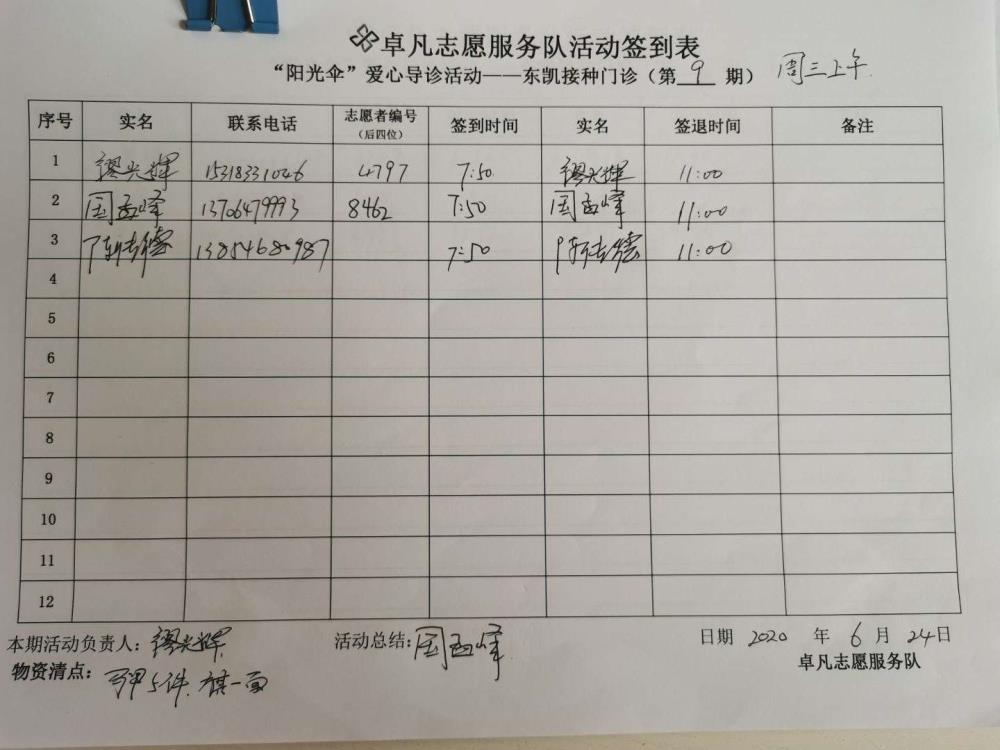 卓凡志愿服务队活动签到表
“阳光伞”爱心导诊活动——东凯接种门诊（第 9 期） 周三上午
序号 实名 联系电话 志愿者编号（后四位） 签到时间 实名 签退时间 备注
1 缪兴辉 15318331046 4797 7:50 缪兴辉 11:00
2 国孟峰 13706479993 8462 7:50 国孟峰 11:00
3 13854680987 7:50 11:00
4
5
6
7
8
9
10
11
12
本期活动负责人：缪兴辉 活动总结：国孟峰 日期 2020 年 6 月 24日
物资清点： 马甲5件. 旗一面 卓凡志愿服务队